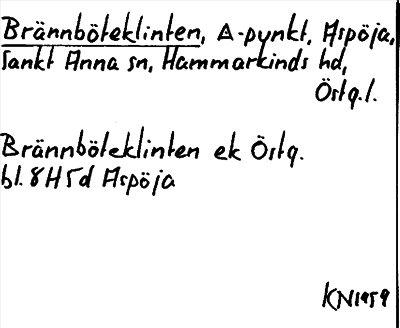 Brännböteklinten, Δ-punkt, Aspöja,
Sankt Anna sn, Hammarkinds hd,
Östg.l.
Brännböteklinten ek Östg.
bl. 8H5d Aspöja
KN1959